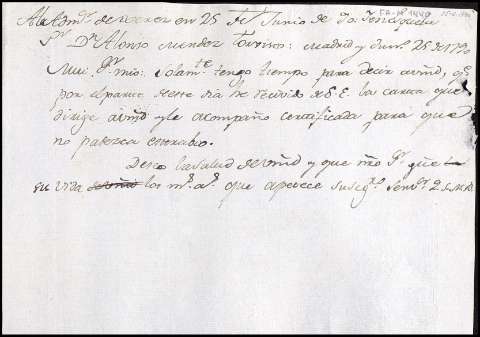 Al Adm.r de en 25 de Junio de
S.or D.n Alonso Mendez : Madrid y Jun.o 25 de 1790
Mui S.or mio: Solam.te tengo tiempo para decir a vmd, q.e
por el parte de este dia he recivido de S.E. la carta que
dirige a vmd y le acompaño certificada para que
no padezca extravio.
Deseo la salud de vmd y que nro S.r gue
su vida los m.s a.s que apetece su seg.o Serv.r Q.S.M.B.